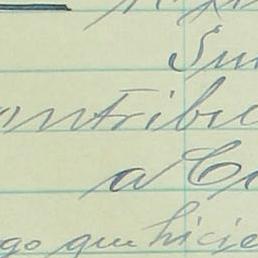 Su
ontribu
a Co
go que hicie